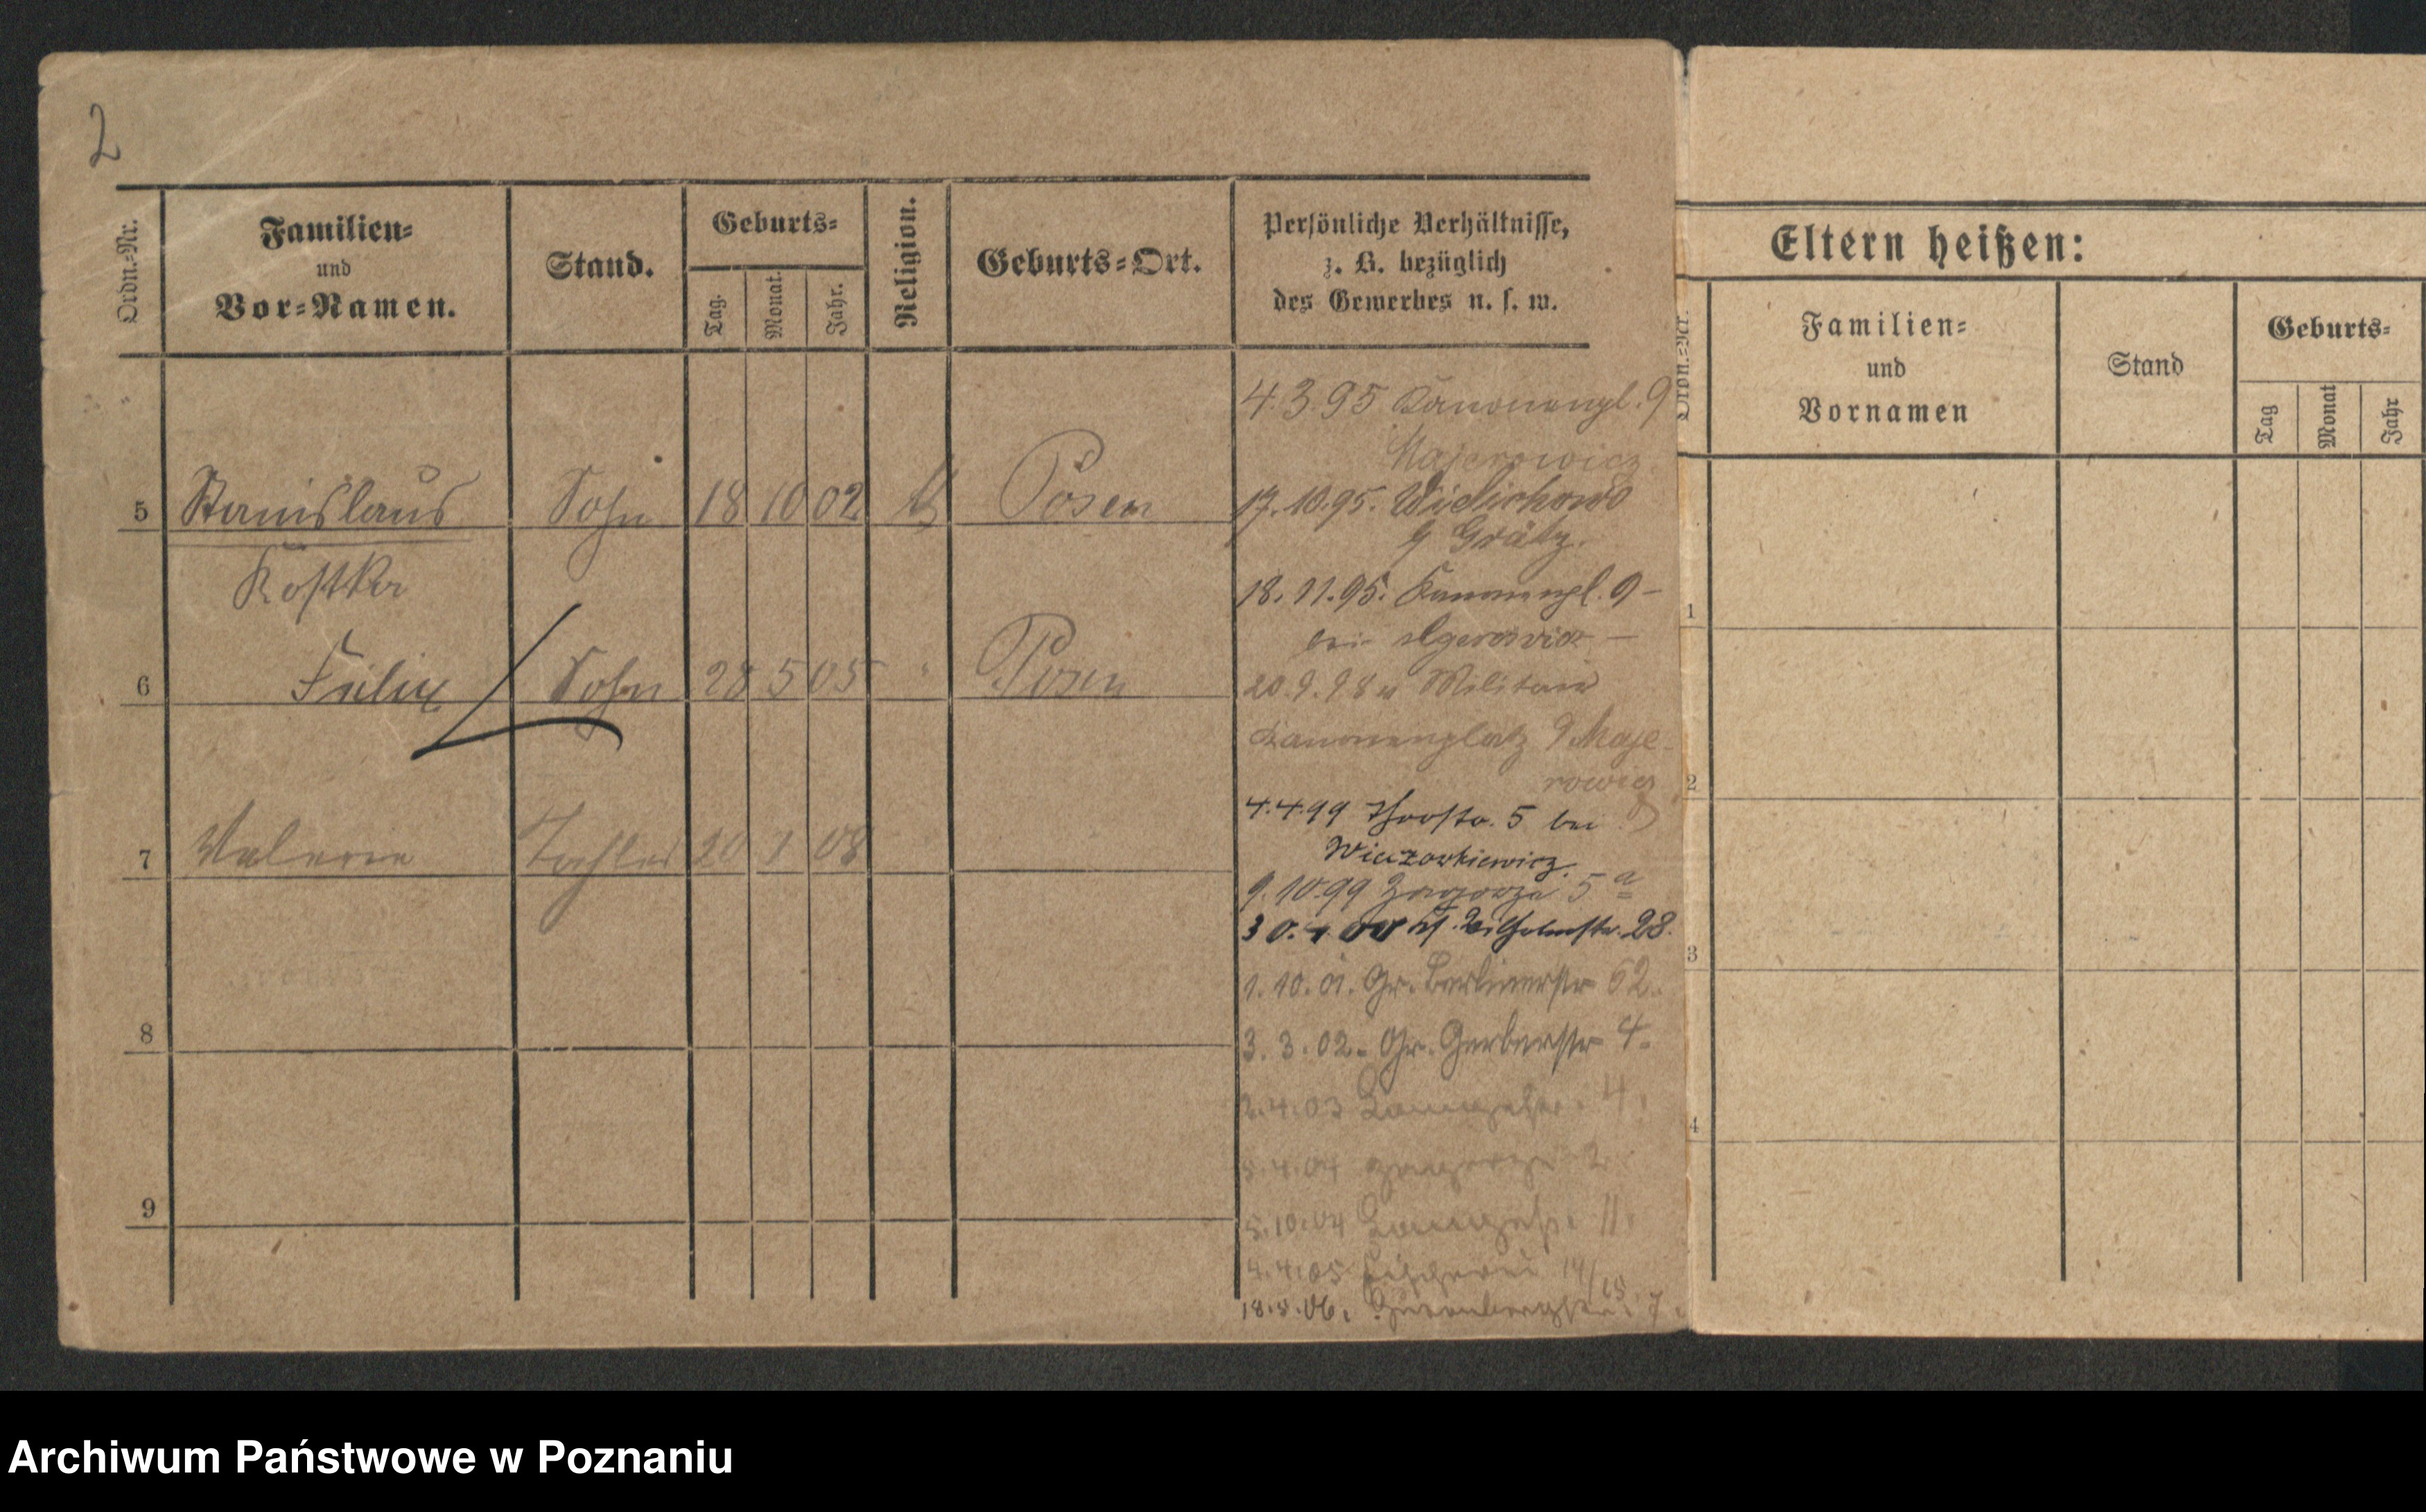 2
Ordn.-Nr.
Familien-
und
Vor-Namen.
Stand.
Geburts-
Tag.
Monat.
Jahr.
Religion.
Geburts-Ort.
Persönliche Verhältnisse,
z. B. bezüglich
des Gewerbes u. s. w.
5 Stanislaus Sohn 18 10 02 Posen
Kostka
6 Felix Sohn 28 5 05 " Posen
7 Valerie Tochter 20 1 08
8
9
4.3.95 Kanonenpl. 9
Majerowicz
17.10.95. Wielichowo
Grätz.
18.11.95. Kanonenpl. 9 –
bei
20.9.98 Militair
Kanonenplatz 9 Maje-
rowicz
4.4.99 Thorstr. 5 bei
Wieczorkiewicz.
9.10.99 Zagorze 5 a
Wilhelmstr. 28.
1.10.01. Gr. Berlinerstr 62.
3.3.02. Gr. Gerberstr 4.
2.4.03 4.
5.4.04 Zagorze 2
5.10.04 11.
4.4.05 Fischerei 14/15
18.5.06. 7
Eltern heißen:
Ordn.-Nr.
Familien-
und
Vornamen
Stand
Geburts-
Tag
Monat
Jahr
1
2
3
4
Archiwum Państwowe w Poznaniu